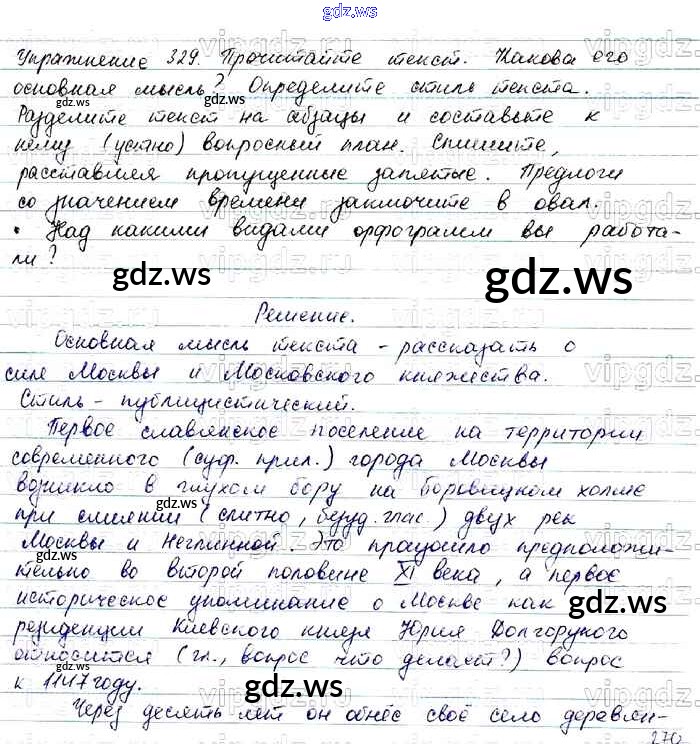 gdz.ws
Упражнение 329. Прочитайте текст. Какова его
основная мысль? Определите стиль текста.
Разделите текст на абзацы и составьте к
нему (устно) вопросный план. Спишите,
расставляя пропущенные запятые. Предлоги
со значением времени заключите в овал.
• Над какими видами орфограмм вы работа-
ли?
Решение.
Основная мысль текста - рассказать о
силе Москвы и Московского княжества.
Стиль - публицистический.
Первое славянское поселение на территории
современного (суф. прил.) города Москвы
возникло в глухом бору на Боровицком холме
при слиянии (слитно, безуд. глас.) двух рек
Москвы и Неглинной. Это произошло предположи-
тельно во второй половине XI века, а первое
историческое упоминание о Москве как о
резиденции Киевского князя Юрия Долгорукого
относится (гл., вопрос что делает?) вопрос
к 1147 году.
Через десять лет он обнёс своё село деревян-
270